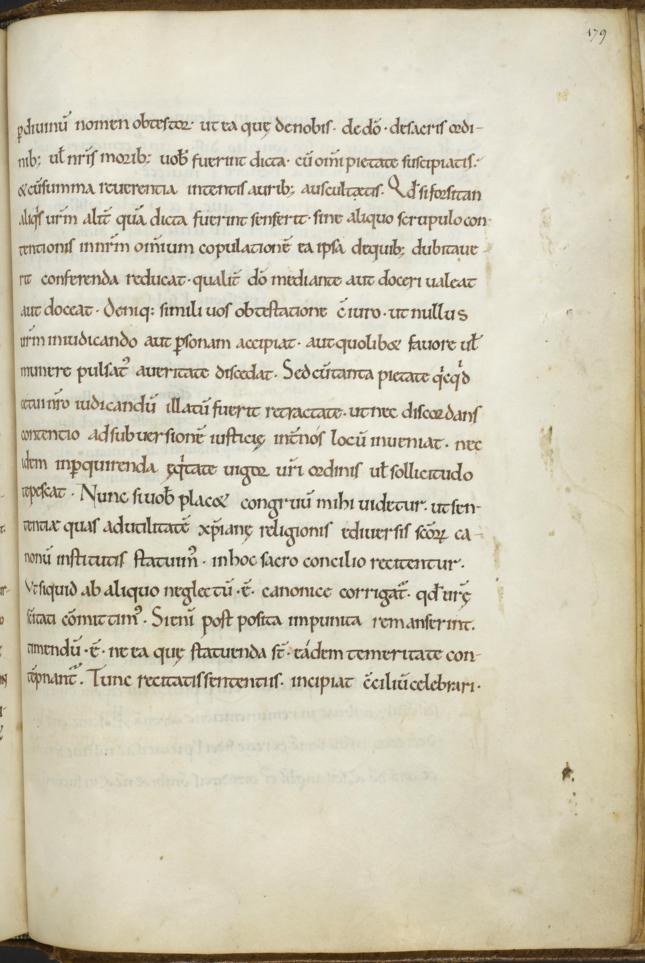 179
p diuinū nomen obtestor· ut ea quę de nobis· de dō· de sacris ordi-
nib; uł nr̄is morib; uob̄ fuerint dicta· cū om̄i pietate suscipiatis·
& cū summa reuerentia intentis aurib; auscultetis. Qd̄ si forsitan
aliq̄s ur̄m alit̄ quā dicta fuerint senserit· sine aliquo scrupulo con-
tentionis in nr̄m om̄ium copulationē ea ipsa de quib; dubitaue
rit conferenda reducat· qualit̄ dō mediante aut doceri ualeat
aut doceat· Deniq; simili uos obtestatione c̄iuro· ut nullus
ur̄m in iudicando aut p̱sonam accipiat· aut quolib& fauore uł
munere pulsat᷒ a ueritate discedat· Sed cū tanta pietate q̇cq̇d
cetui nr̄o iudicandū illatū fuerit retractate· ut nec discordans
contentio ad subuersionē iusticię int̄ nos locū inueniat· nec
idem in p̱quirenda ęq̇tate uigor ur̄i ordinis uł sollicitudo
tepescat· Nunc si uob̄ plac& congruū mihi uidetur· ut sen-
tentiæ quas ad utilitatē xp̄ianę religionis e diuersis sc̄oꝝ ca-
nonū institutis statuim᷒· in hoc sacro concilio recitentur.
Vt siquid ab aliquo neglectū· ē· canonice corrigat᷒· qd̄ ur̄ę
sc̄itati cōmittim᷒· Si eni̅ post posita impunita remanserint.
timendū· ē· ne ea quę statuenda st̄· eādem temeritate con-
tēpnant᷒. Tunc recitatis sententiis· incipiat c̄ciliū celebrari·